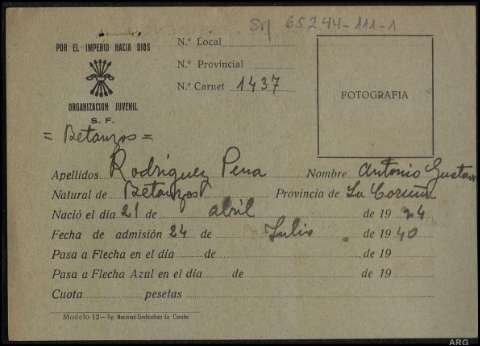 65244-111-1
POR EL IMPERIO HACIA DIOS
N.º Local
N.º Provincial
N.º Carnet 1437
FOTOGRAFIA
ORGANIZACION JUVENIL
S. F.
= Betanzos =
Apellidos Rodriguez Pena Nombre Antonio Gustavo
Natural de Betanzos Provincia de La Coruña
Nació el día 21 de abril de 19
Fecha de admisión 24 de Julio de 1940
Pasa a Flecha en el día de de 19
Pasa a Flecha Azul en el día de de 19
Cuota pesetas
Modelo 12
ARG